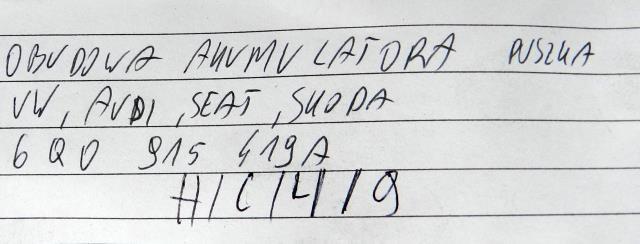 OBUDOWA AKUMULATORA PUSZKA
VW, AUDI, SEAT, SKODA
6Q0 915 419A
H/C/4/9